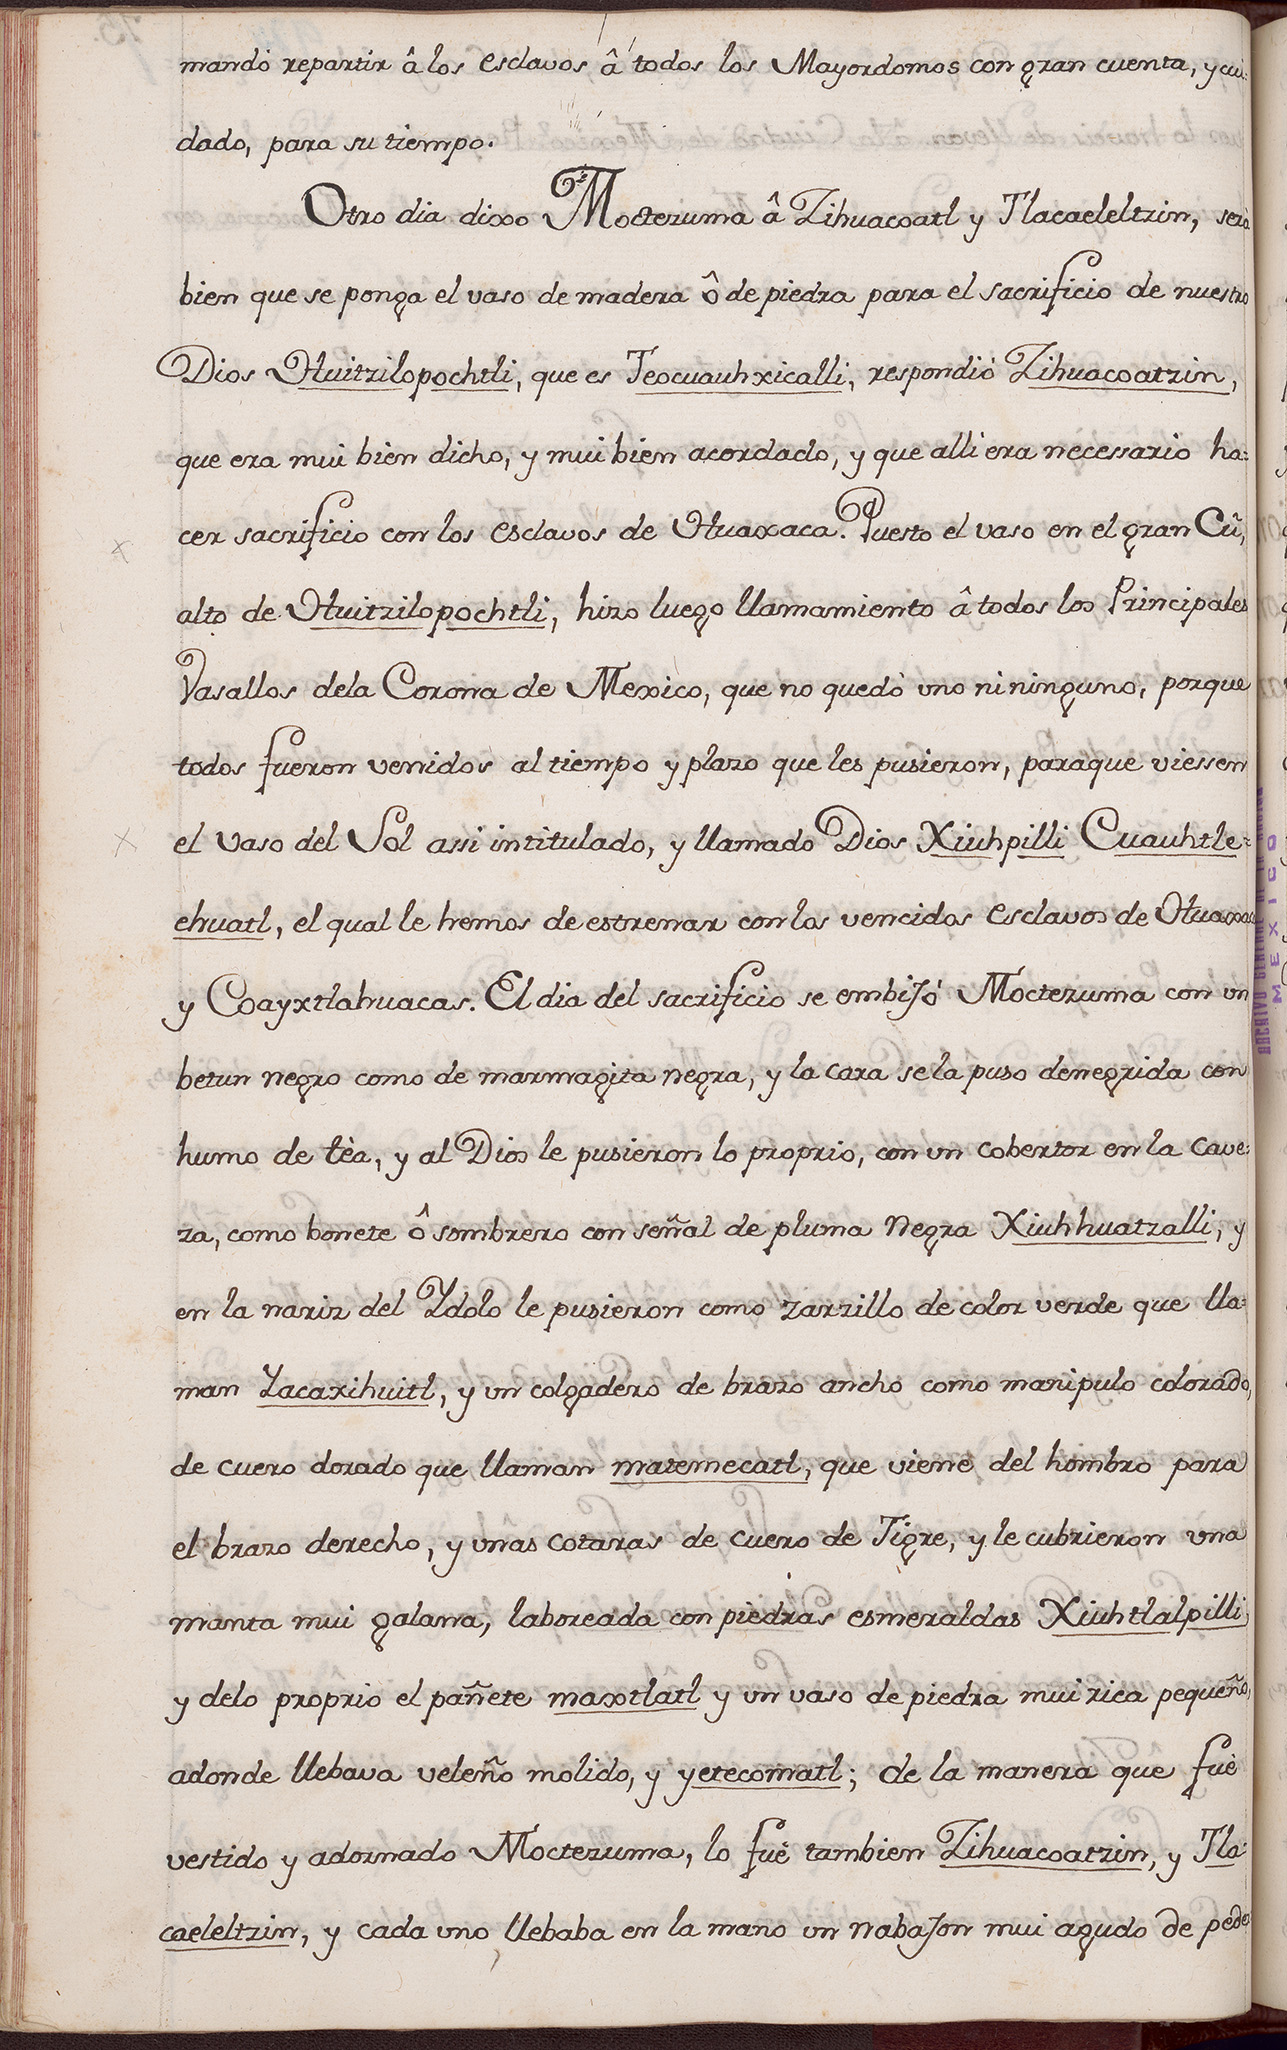 mandó repartir â los esclavos â todos los Mayordomos con gran cuenta, y cui-
dado, para su tiempo.
Otro dia dixo Moctezuma â Zihuacoatl y Tlacaeleltzin, será
bien que se ponga el vaso de madera ô de piedra para el sacrificio de nuestro
Dios Huitzilopochtli, que es Teocuauhxicalli, respondió Zihuacoatzin,
que era mui bien dicho, y mui bien acordado, y que alli era necessario ha=
cer sacrificio con los esclavos de Huaxaca. Puesto el vaso en el gran Cû,
alto de Huitzilopochtli, hizo luego llamamiento â todos los Principales
Vasallos dela Corona de Mexico, que no quedó uno ni ninguno, porque
todos fueron venidos al tiempo y plazo que les pusieron, paraque viessen
el Vaso del Sol assi intitulado, y llamado Dios Xiuhpilli Cuauhtle=
ehuatl, el qual le hemos de estrenar con los vencidos esclavos de Huaxac
y Coayxtlahuacas. El dia del sacrificio se embijó Moctezuma con un
betun negro como de marmagita negra, y la cara se la puso denegrida con
humo de tèa, y al Dios le pusieron lo proprio, con un cobertor en la cave=
za, como bonete ô sombrero con señal de pluma Negra Xiuhhuatzalli, y
en la nariz del Ydolo le pusieron como zarzillo de color verde que lla=
man Yacaxihuitl, y un colgadero de brazo ancho como manipulo colorado,
de cuero dorado que llaman matemecatl, que viene del hombro para
el brazo derecho, y unas cotaras de cuero de Tigre, y le cubrieron una
manta mui galana, laboreada con piedras esmeraldas Xiuhtlalpilli,
y delo proprio el pañete maxtlatl y un vaso de piedra mui rica pequeño,
adonde llebava veleño molido, y yetecomatl; de la manera que fuè
vestido y adornado Moctezuma, lo fuè tambien Zihuacoatzin, y Tla-
caeleltzin, y cada uno llebaba en la mano un nabajon mui agudo de peder
ARCHIVO GENERAL
MEXICO